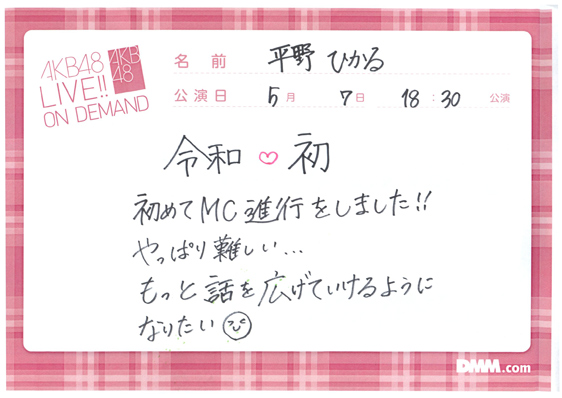 AKB48
LIVE!!
ON DEMAND
AKB
48
名前 平野 ひかる
公演日 5月 7日 18:30 公演
令和♡初
初めてMC進行をしました!!
やっぱり難しい…
もっと話を広げていけるように
なりたい
DMM.com